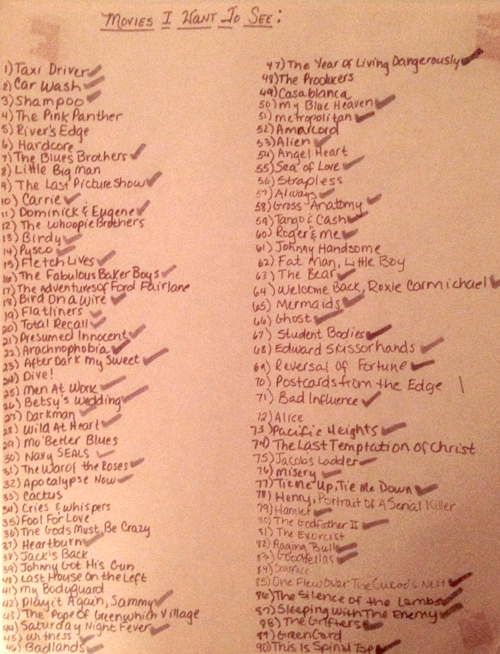 Movies I Want To See:
1) Taxi Driver ✓
2) Car Wash ✓
3) Shampoo ✓
4) The Pink Panther
5) River's Edge
6) Hardcore
7) The Blues Brothers ✓
8) Little Big Man
9) The Last Picture Show ✓
10) Carrie ✓
11) Dominick & Eugene ✓
12) The Whoopie Brothers
13) Birdy ✓
14) Pysco ✓
15) Fletch Lives ✓
16) The Fabulous Baker Boys ✓
17) The Adventures of Ford Fairlane
18) Bird On a Wire ✓
19) Flatliners ✓
20) Total Recall ✓
21) Presumed Innocent ✓
22) Arachnophobia ✓
23) After Dark My Sweet ✓
24) Dive!
25) Men At Work ✓
26) Betsy's Wedding ✓
27) Darkman ✓
28) Wild At Heart ✓
29) Mo' Better Blues
30) Navy SEALS ✓
31) The War of the Roses ✓
32) Apocalypse Now ✓
33) Cactus
34) Cries & Whispers
35) Fool For Love
36) The Gods Must Be Crazy
37) Heartburn ✓
38) Jack's Back
39) Johnny Got His Gun
40) Last House on the Left
41) My Bodyguard
42) Play it Again, Sammy ✓
43) The "Pope of Greenwhich Village
44) Saturday Night Fever ✓
45) Witness ✓
46) Badlands ✓
47) The Year of Living Dangerously ✓
48) The Producers
49) Casablanca
50) My Blue Heaven ✓
51) Metropolitan ✓
52) Amarcord
53) Alien ✓
54) Angel Heart
55) Sea of Love ✓
56) Strapless
57) Always ✓
58) Gross Anatomy ✓
59) Tango & Cash ✓
60) Roger & Me ✓
61) Johnny Handsome
62) Fat Man, Little Boy
63) The Bear ✓
64) Welcome Back, Roxie Carmichael ✓
65) Mermaids ✓
66) Ghost ✓
67) Student Bodies ✓
68) Edward Scissorhands ✓
69) Reversal of Fortune ✓
70) Postcards from the Edge
71) Bad Influence ✓
72) Alice
73) Pacific Heights ✓
74) The Last Temptation of Christ
75) Jacobs Ladder ✓
76) Misery ✓
77) Tie Me Up, Tie Me Down ✓
78) Henry, Portrait of A Serial Killer
79) Hamlet ✓
80) The Godfather II ✓
81) The Exorcist
82) Raging Bull ✓
83) Goodfellas ✓
84) Scarface
85) One Flew Over The Cukoo's Nest ✓
86) The Silence of the Lambs ✓
87) Sleeping With The Enemy ✓
88) The Grifters ✓
89) Green Card
90) This Is Spinal Tap ✓